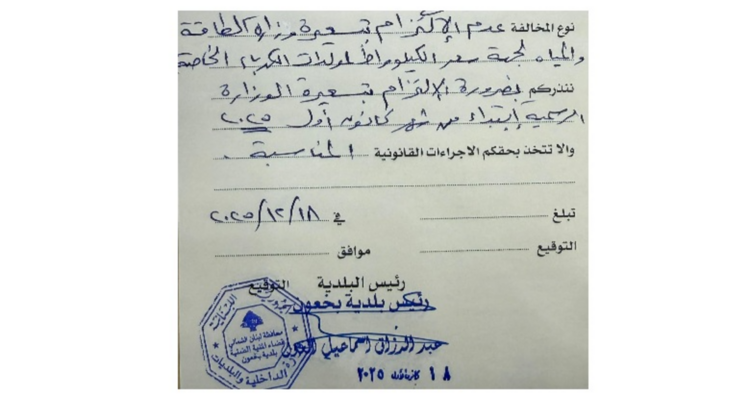 نوع المخالفة عدم الإلتزام بتسعيرة وزارة الطاقة
والمياه لجهة سعر الكيلوواط لمولدات الكهرباء الخاصة
ننذركم بضرورة الإلتزام بتسعيرة الوزارة
الرسمية إبتداءً من شهر كانون أول ٢٠٢٥
والا تتخذ بحقكم الاجراءات القانونية المناسبة.
تبلغ في ٢٠٢٥/١٢/١٨
التوقيع موافق
رئيس البلدية التوقيع
رئيس بلدية بخعون
عبد الرزاق اسماعيل
١٨ كانون الأول ٢٠٢٥
الجمهورية اللبنانية
محافظة لبنان الشمالي
قضاء المنية الضنية
بلدية بخعون
وزارة الداخلية والبلديات